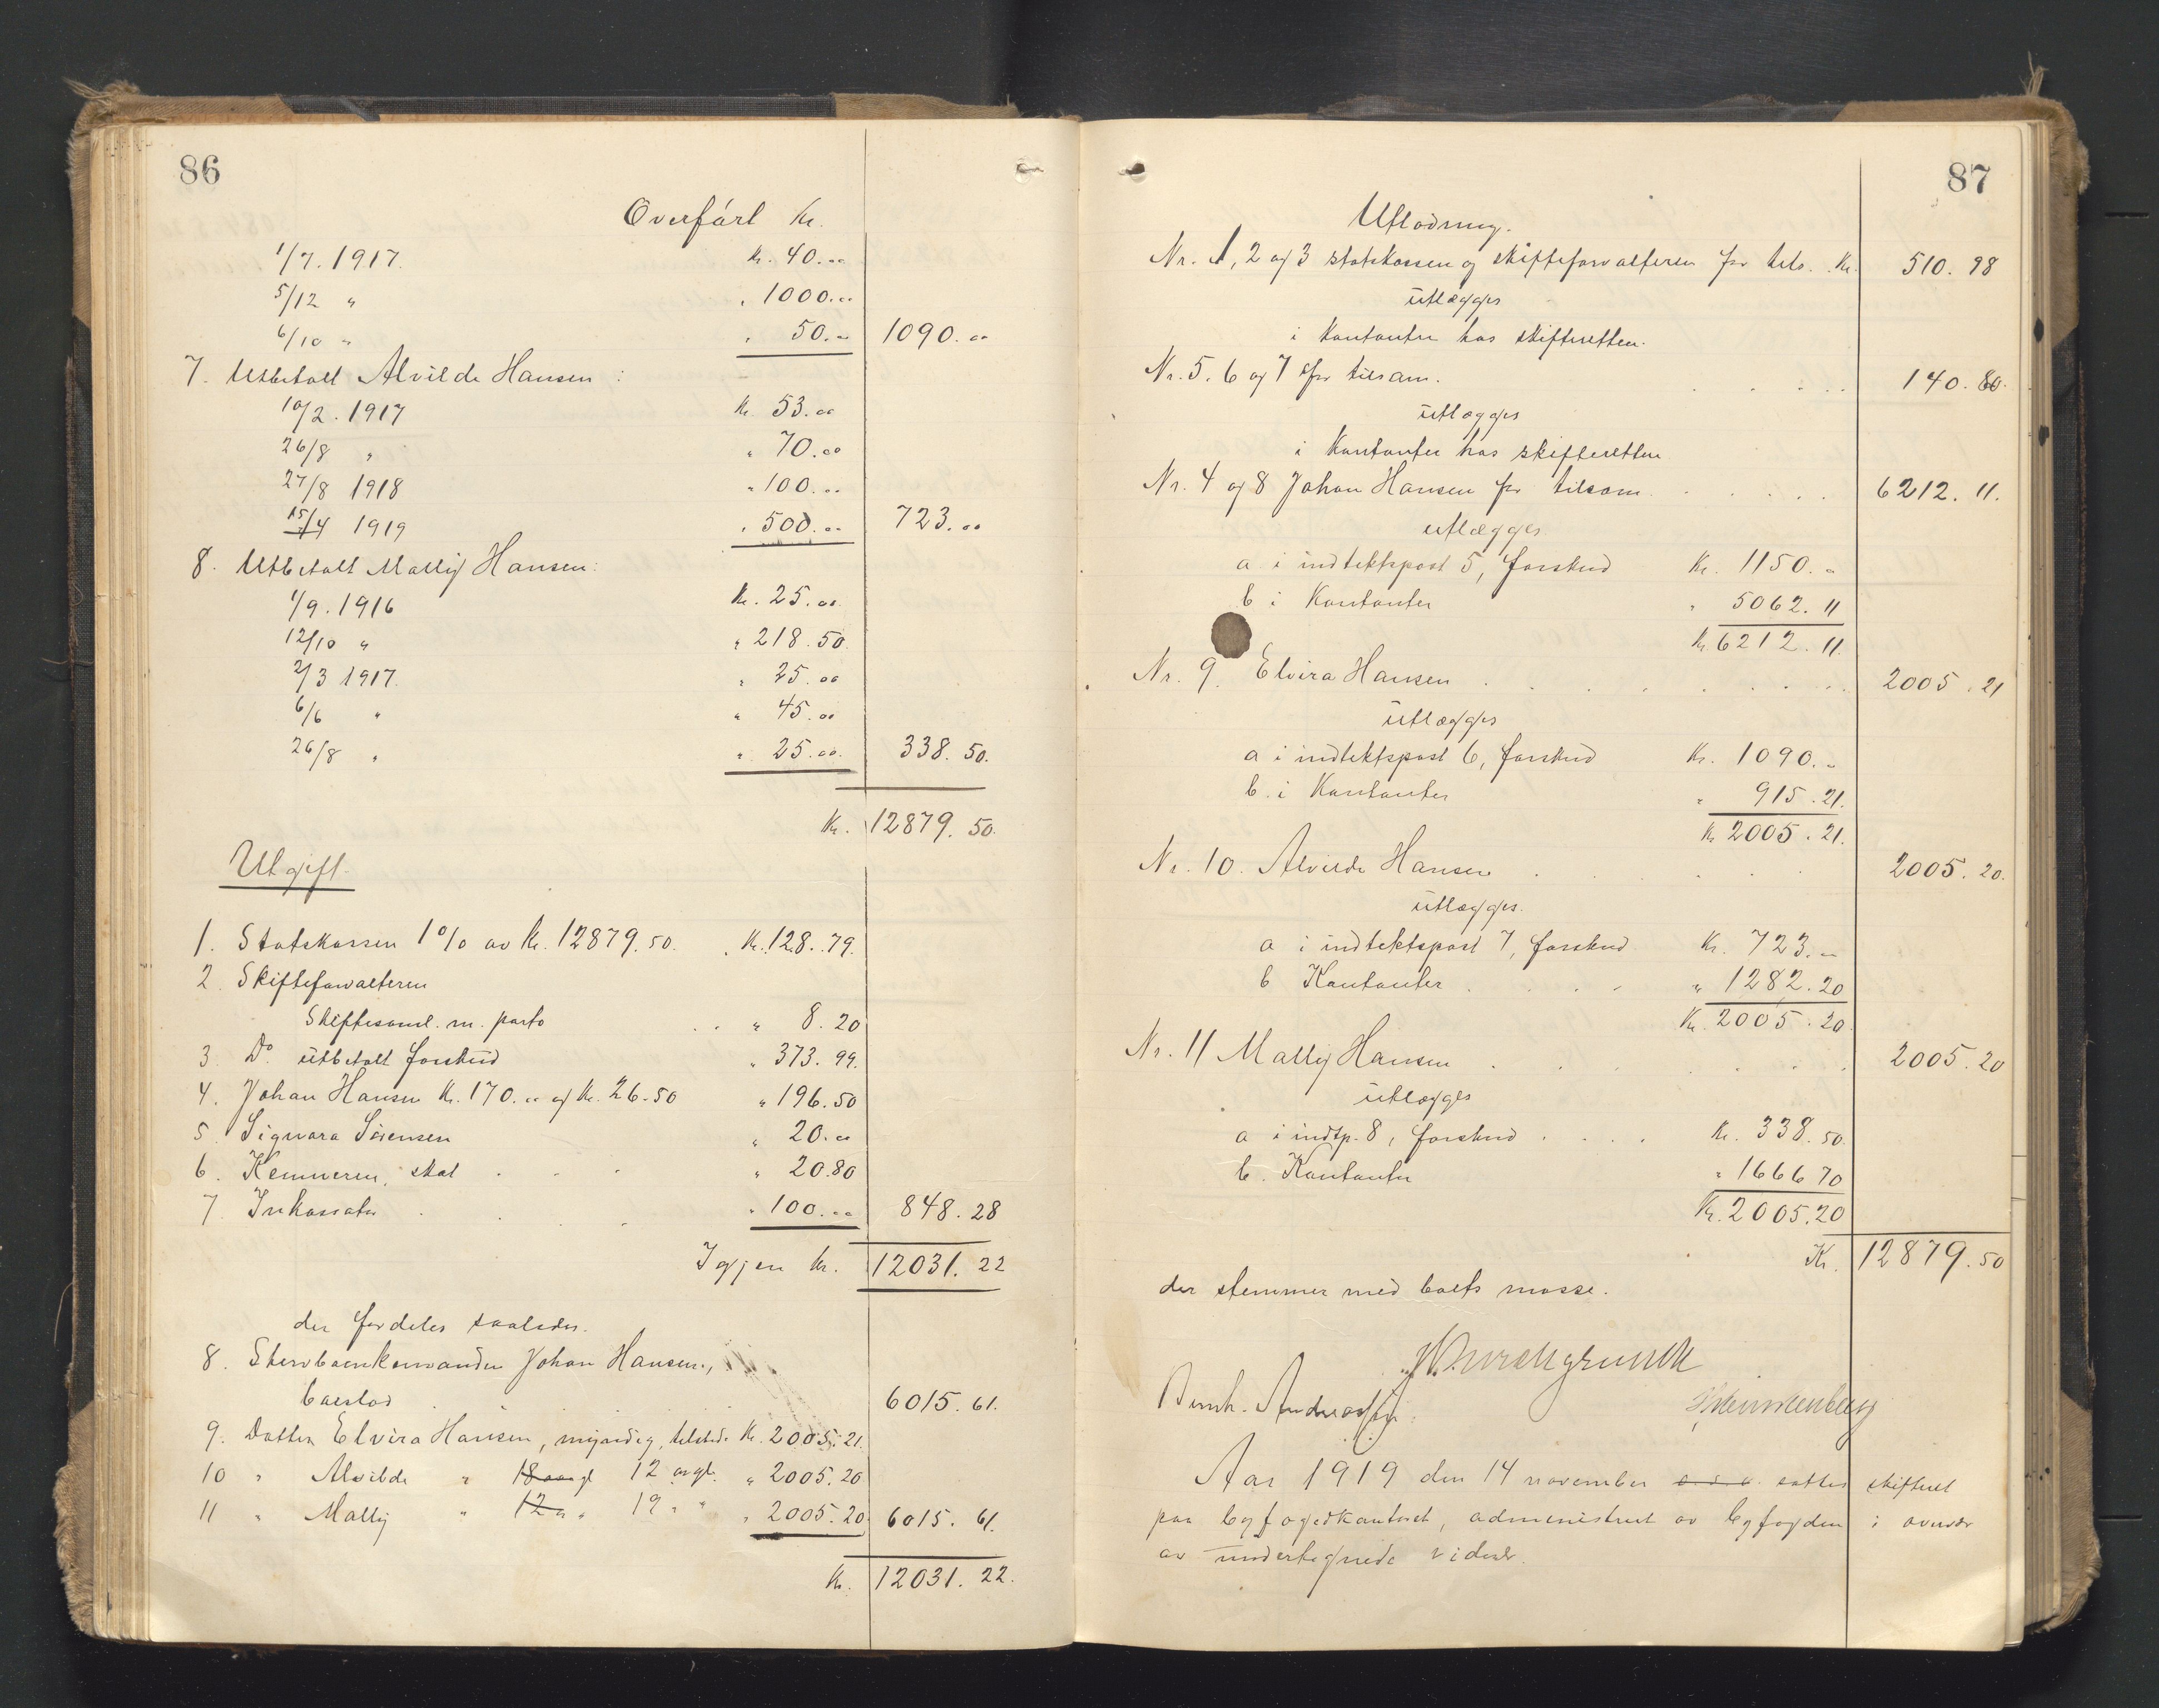 86
Overført Kr.
1/7. 1917. Kr. 40.00
5/12 " " 1000.00
6/10 " " 50.00 1090.00
7. Utbetalt Alvilde Hansen:
10/2. 1917 Kr. 53.00
26/8 " " 70.00
27/8 1918 " 100.00
15/4 1919 " 500.00 723.00
8. Utbetalt Mally Hansen:
1/9. 1916 Kr. 25.00
12/10 " " 218.50
2/3 1917. " 25.00
6/6 " " 45.00
26/8 " " 25.00 338.50.
Kr. 12879.50.
Utgift.
1. Statskassen 1% av Kr. 12879.50. Kr. 128.79.
2. Skifteforvalteren
Skiftesaml. m. porto " 8.20
3 Do. utbetalt forskud " 373.99.
4. Johan Hansen Kr. 170.00 og Kr. 26.50 " 196.50
5. Sigvara Sørensen " 20.00
6. Kemneren, skat " 20.80
7. Inkassator " 100.00 848.28
Igjen Kr. 12031.22
der fordeles saaledes.
8. Stervboenkemanden Johan Hansen,
boeslod 6015.61.
9. Datter Elvira Hansen, myndig, tilstede Kr. 2005.21.
10 " Alvilde " 18 aargl 12 aargl. " 2005.20
11 " Mally " 12 " " 19 " " " 2005.20. 6015.61.
Kr. 12031.22.
87
Utlodning.
Nr. 1, 2 og 3 statskassen og skifteforvalteren for tils. Kr. 510.98
utlægges
i Kontanter hos skifteretten.
Nr. 5, 6 og 7 for tilsam. 140.80.
utlægges
i Kontanter hos skifteretten
Nr. 4 og 8 Johan Hansen for tilsam. 6212.11.
utlægges
a i indtektspost 5, forskud Kr. 1150.-
b i Kontanter " 5062.11
Kr 6212.11.
Nr. 9. Elvira Hansen 2005.21
utlægges
a i indtektspost 6, forskud Kr. 1090.-
b. i Kontanter " 915.21.
Kr 2005.21.
Nr. 10. Alvilde Hansen 2005.20.
utlægges.
a i indtektspost 7, forskud Kr. 723.-
b Kontanter " 1282.20
Kr. 2005.20.
Nr. 11 Mally Hansen 2005.20
utlægges
a i indtp. 8, forskud Kr. 338.50.
b. Kontanter " 1666 70
Kr. 2005.20
Kr. 12879.50
der stemmer med boets masse.
Aar 1919 den 14 november sattes skifteret
paa byfogedkontoret, administreret av byfogden i overvær
av undertegnede vidner.